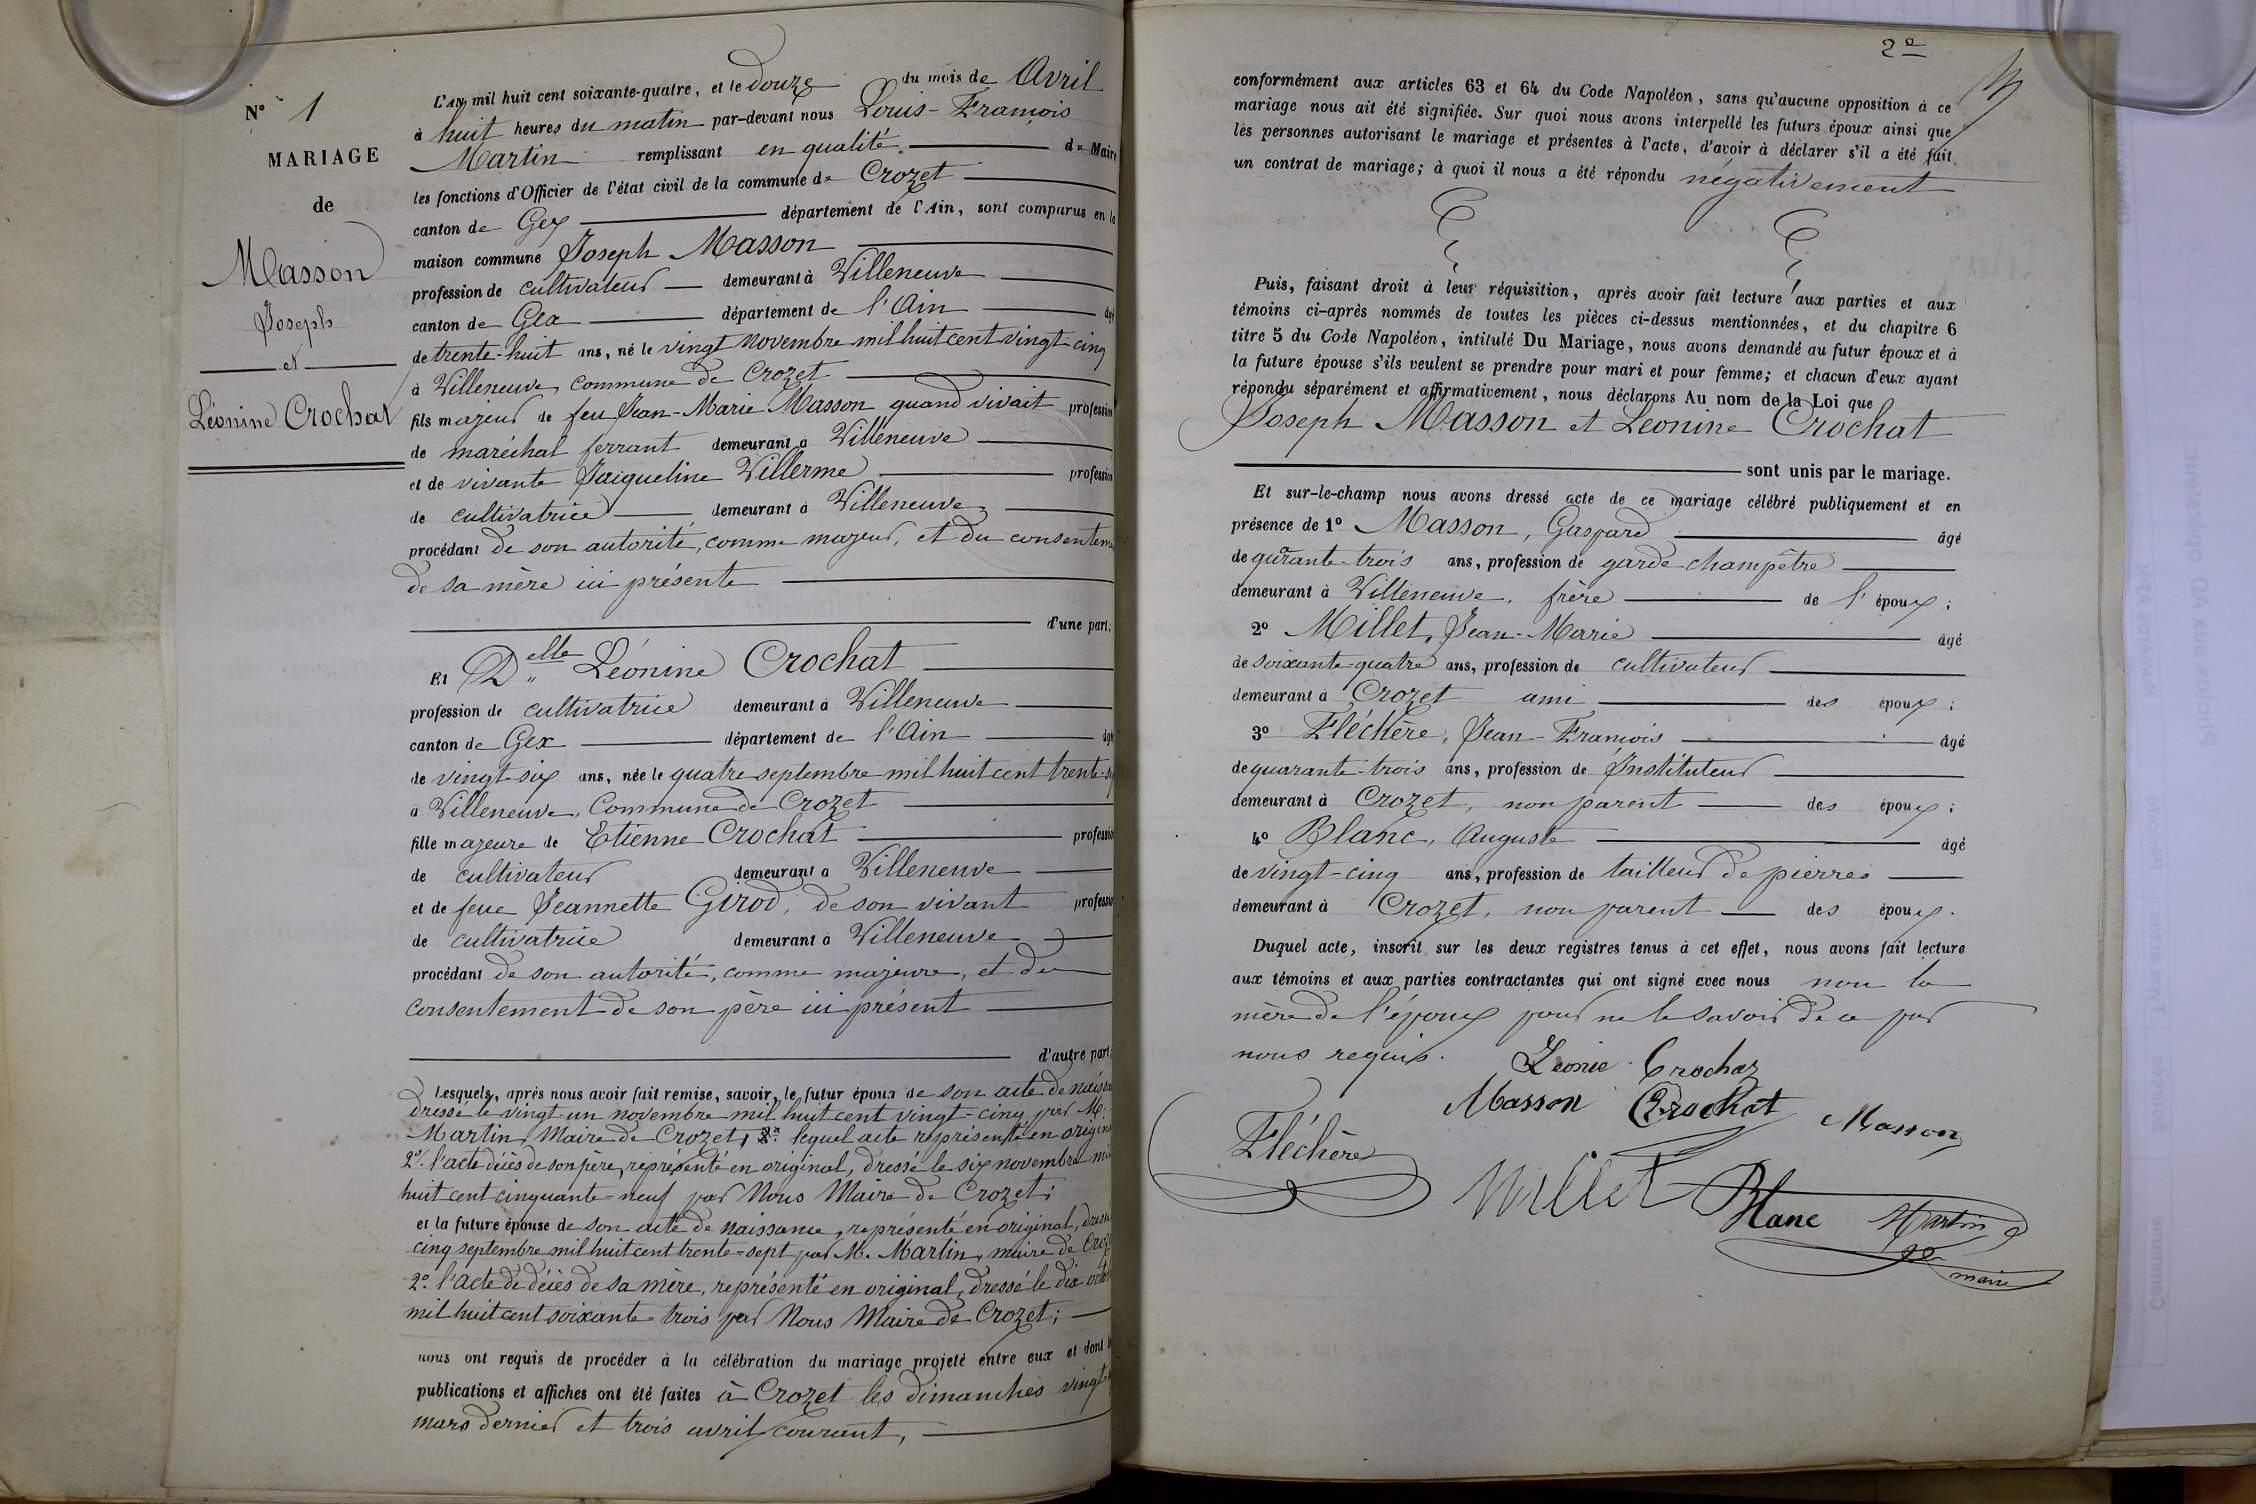 N° 1
MARIAGE
de
Masson
Joseph
et
Léonine Crochat
L'an mil huit cent soixante-quatre, et le douze du mois de Avril
à huit heures du matin par-devant nous Louis-François
Martin remplissant en qualité de Maire
les fonctions d'Officier de l'état civil de la commune de Crozet
canton de Gex département de l'Ain, sont comparus en la
maison commune Joseph Masson
profession de cultivateur demeurant à Villeneuve
canton de Gex département de l'Ain âgé
de trente-huit ans, né le vingt novembre mil huit cent vingt-cinq
à Villeneuve, commune de Crozet
fils majeur de feu Jean-Marie Masson quand vivait profession
de maréchal ferrant demeurant à Villeneuve
et de vivante Jaiqueline Villerme profession
de cultivatrice demeurant à Villeneuve
procédant de son autorité, comme majeur, et du consenteme
de sa mère ici présente
d'une part;
Et Delle Léonine Crochat
profession de cultivatrice demeurant à Villeneuve
canton de Gex département de l'Ain âgé
de vingt-six ans, née le quatre septembre mil huit cent trente-s
à Villeneuve, Commune de Crozet
fille majeure de Etienne Crochat profession
de cultivateur demeurant à Villeneuve
et de feue Jeannette Girod, de son vivant profession
de cultivatrice demeurant à Villeneuve
procédant de son autorité, comme majeure, et du
consentement de son père ici présent
d'autre part;
Lesquels, après nous avoir fait remise, savoir, le futur époux de son acte de naissa
dressé le vingt-un novembre mil huit cent vingt-cinq par M.
Martin, Maire de Crozet, lequel acte représenté en origina
2°. l'acte décès de son père, représenté en original, dressé le six novembre mi
huit cent cinquante-neuf par Nous Maire de Crozet;
et la future épouse de son acte de naissance, représenté en original, dressé
cinq septembre mil huit cent trente-sept par M. Martin, maire de Croz
2°. l'acte de décès de sa mère, représenté en original, dressé le dix octob
mil huit cent soixante-trois par Nous Maire de Crozet;
nous ont requis de procéder à la célébration du mariage projeté entre eux et dont l
publications et affiches ont été faites à Crozet les dimanches vingt-
mars dernier et trois avril courant,
2e
conformément aux articles 63 et 64 du Code Napoléon, sans qu'aucune opposition à ce
mariage nous ait été signifiée. Sur quoi nous avons interpellé les futurs époux ainsi que
les personnes autorisant le mariage et présentes à l'acte, d'avoir à déclarer s'il a été fait
un contrat de mariage; à quoi il nous a été répondu négativement
Puis, faisant droit à leur réquisition, après avoir fait lecture aux parties et aux
témoins ci-après nommés de toutes les pièces ci-dessus mentionnées, et du chapitre 6
titre 5 du Code Napoléon, intitulé Du Mariage, nous avons demandé au futur époux et à
la future épouse s'ils veulent se prendre pour mari et pour femme; et chacun d'eux ayant
répondu séparément et affirmativement, nous déclarons Au nom de la Loi que
Joseph Masson et Léonine Crochat
sont unis par le mariage.
Et sur-le-champ nous avons dressé acte de ce mariage célébré publiquement et en
présence de 1° Masson, Gaspard âgé
de qurante-trois ans, profession de garde champêtre
demeurant à Villeneuve, frère de l'époux;
2° Millet, Jean-Marie âgé
de soixante-quatre ans, profession de cultivateur
demeurant à Crozet ami des époux;
3° Fléchère, Jean-François âgé
de quarante-trois ans, profession de Instituteur
demeurant à Crozet, non parent des époux;
4° Blanc, Auguste âgé
de vingt-cinq ans, profession de tailleur de pierres
demeurant à Crozet, non parent des époux.
Duquel acte, inscrit sur les deux registres tenus à cet effet, nous avons fait lecture
aux témoins et aux parties contractantes qui ont signé avec nous non la
mère de l'époux pour ne le savoir de ce par
nous requis. Leonie Crochaz
Masson Crochat Masson
Fléchère
Millet Blanc Martin
maire